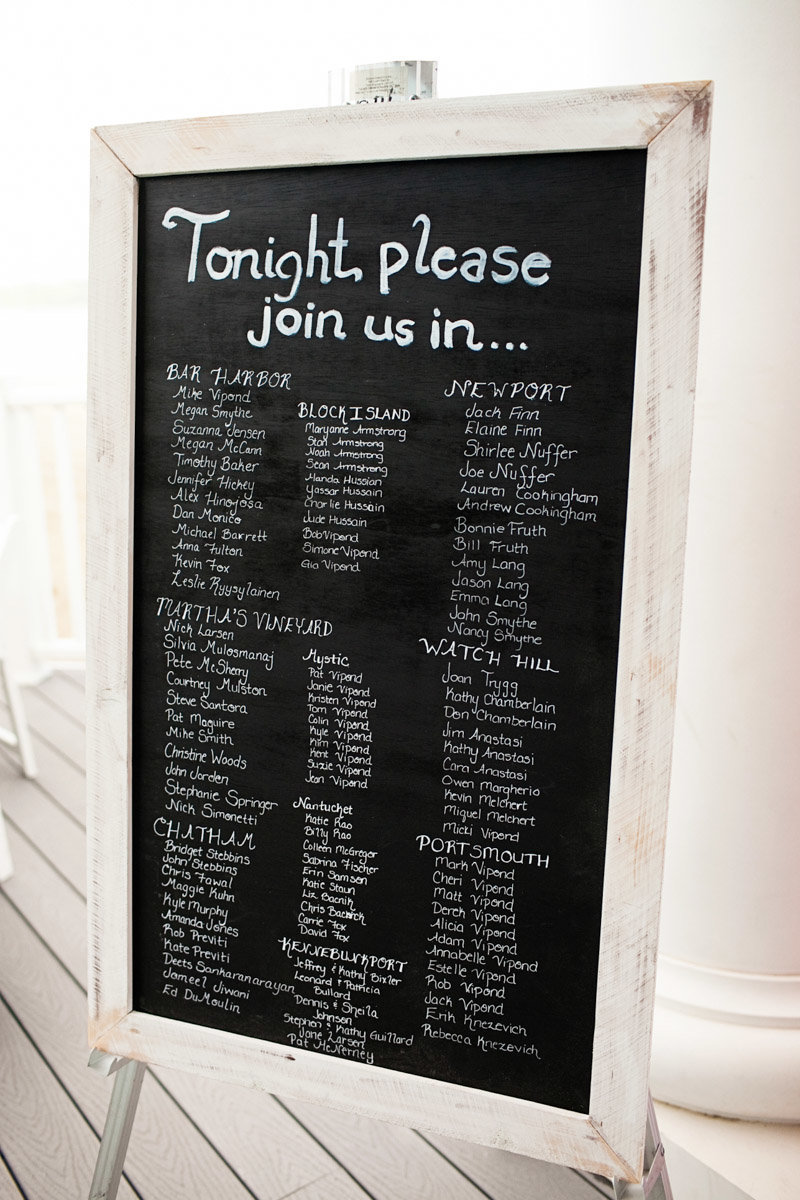 Tonight, please
join us in...
BAR HARBOR
Mike Vipond
Megan Smythe
Suzanna Jensen
Megan McCann
Timothy Baker
Jennifer Hickey
Alex Hinojosa
Dan Monico
Michael Barrett
Anna Fulton
Kevin Fox
Leslie Ryysylainen
MARTHA'S VINEYARD
Nick Larsen
Silvia Mulosmanaj
Pete McSherry
Courtney Mulston
Steve Santora
Pat Maguire
Mike Smith
Christine Woods
John Jorden
Stephanie Springer
Nick Simonetti
CHATHAM
Bridget Stebbins
John Stebbins
Chris Fawal
Maggie Kuhn
Kyle Murphy
Amanda Jones
Rob Previti
Kate Previti
Deets Sankaranarayan
Jameel Jiwani
Ed DuMoulin
BLOCK ISLAND
Maryanne Armstrong
Stan Armstrong
Noah Armstrong
Sean Armstrong
Handa Hussian
Yassar Hussain
Charlie Hussain
Jude Hussain
Bob Vipond
Simone Vipond
Gia Vipond
Mystic
Pat Vipond
Janie Vipond
Kristen Vipond
Tom Vipond
Colin Vipond
Kyle Vipond
Kim Vipond
Kent Vipond
Suzie Vipond
Jean Vipond
Nantucket
Katie Rao
Billy Rao
Colleen McGregor
Sabrina Fischer
Erin Samsen
Katie Staun
Liz Bacnik
Chris
Carrie Fox
David Fox
KENNEBUNKPORT
Jeffrey & Kathy Bixler
Leonard & Patricia
Bullard
Dennis & Sheila
Johnson
Stephen & Kathy Guillard
Jane Larsen
Pat McNerney
NEWPORT
Jack Finn
Elaine Finn
Shirlee Nuffer
Joe Nuffer
Lauren Cookingham
Andrew Cookingham
Bonnie Fruth
Bill Fruth
Amy Lang
Jason Lang
Emma Lang
John Smythe
Nancy Smythe
WATCH HILL
Joan Trygg
Kathy Chamberlain
Don Chamberlain
Jim Anastasi
Kathy Anastasi
Cara Anastasi
Owen Margherio
Kevin Melchert
Miquel Melchert
Micki Vipond
PORTSMOUTH
Mark Vipond
Cheri Vipond
Matt Vipond
Derek Vipond
Alicia Vipond
Adam Vipond
Annabelle Vipond
Estelle Vipond
Rob Vipond
Jack Vipond
Erik Knezevich
Rebecca Knezevich